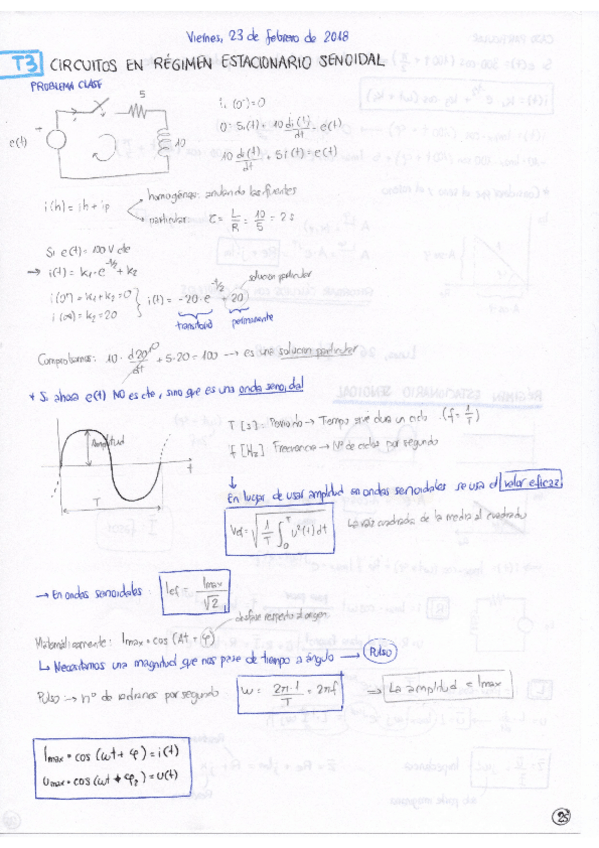 Viernes, 23 de febrero de 2018
T3 CIRCUITOS EN RÉGIMEN ESTACIONARIO SENOIDAL
PROBLEMA CLASE
5
e(t)
10
i. (0⁻)=0
0= 5i(t) + 10 di(t)/dt - e(t)
10 di(t)/dt + 5i(t) = e(t)
i(h) = ih + ip
homogénea: anulando las fuentes
particular
τ = L/R = 10/5 = 2s
Si e(t) = 100 V de
→ i(t) = k₁·e^(-t/2) + k₂
solución particular
i(0⁺) = k₁+k₂ = 0
i(∞) = k₂ = 20
i(t) = -20·e^(-t/2) + 20
transitorio permanente
Comprobamos: 10· d20/dt + 5·20 = 100 → es una solución particular
* Si ahora e(t) NO es cte, sino que es una onda senoidal
Amplitud
t
T
T [s] = Periodo → Tiempo que dura un ciclo (f = 1/T)
f [Hz] Frecuencia → Nº de ciclos por segundo
En lugar de usar amplitud en ondas senoidales se usa el valor eficaz
Vef = √(1/T ∫₀ᵀ u²(t) dt)
La raíz cuadrada de la media al cuadrado
→ En ondas senoidales: Ief = Imax/√2
desfase respecto al origen
Matemáticamente: Imax·cos (At + φ)
↳ Necesitamos una magnitud que nos pase de tiempo a ángulo → Pulso
Pulso → nº de radianes por segundo ω = 2π·1/T = 2πf → La amplitud e Imax
Imax·cos (ωt + φ) = i(t)
Umax·cos (ωt + φ₂) = u(t)
25